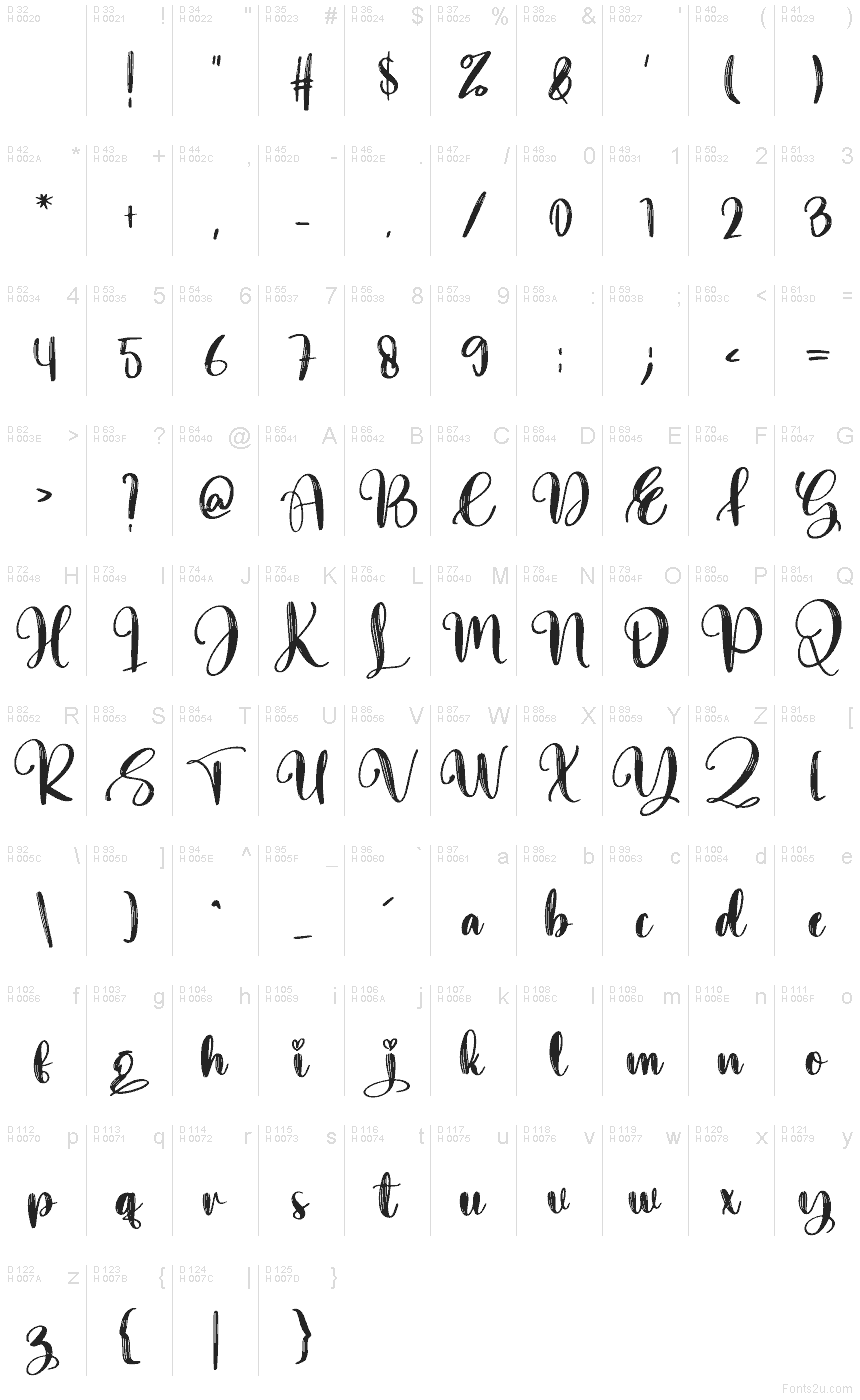 D 32 H 0020 D 33 H 0021 ! D 35 H 0022 " D 35 H 0023 # D 36 H 0024 $ D 37 H 0025 % D 38 H 0026 & D 39 H 0027 ' D 40 H 0028 ( D 41 H 0029 )
! " # $ % & ' ( )
D 42 H 002A * D 43 H 002B + D 44 H 002C , D 45 H 002D - D 46 H 002E . D 47 H 002F / D 48 H 0030 0 D 49 H 0031 1 D 50 H 0032 2 D 51 H 0033 3
* + , - . / 0 1 2 3
D 52 H 0034 4 D 53 H 0035 5 D 54 H 0036 6 D 55 H 0037 7 D 56 H 0038 8 D 57 H 0039 9 D 58 H 003A : D 59 H 003B ; D 60 H 003C < D 61 H 003D =
4 5 6 7 8 9 : ; < =
D 62 H 003E > D 63 H 003F ? D 64 H 0040 @ D 65 H 0041 A D 66 H 0042 B D 67 H 0043 C D 68 H 0044 D D 69 H 0045 E D 70 H 0046 F D 71 H 0047 G
> ? @ A B C D E F G
D 72 H 0048 H D 73 H 0049 I D 74 H 004A J D 75 H 004B K D 76 H 004C L D 77 H 004D M D 78 H 004E N D 79 H 004F O D 80 H 0050 P D 81 H 0051 Q
H I J K L M N O P Q
D 82 H 0052 R D 83 H 0053 S D 84 H 0054 T D 85 H 0055 U D 86 H 0056 V D 87 H 0057 W D 88 H 0058 X D 89 H 0059 Y D 90 H 005A Z D 91 H 005B [
R S T U V W X Y Z [
D 92 H 005C \ D 93 H 005D ] D 94 H 005E ^ D 95 H 005F _ D 96 H 0060 ` D 97 H 0061 a D 98 H 0062 b D 99 H 0063 c D 100 H 0064 d D 101 H 0065 e
\ ] ^ _ ` a b c d e
D 102 H 0066 f D 103 H 0067 g D 104 H 0068 h D 105 H 0069 i D 106 H 006A j D 107 H 006B k D 108 H 006C l D 109 H 006D m D 110 H 006E n D 111 H 006F o
f g h i j k l m n o
D 112 H 0070 p D 113 H 0071 q D 114 H 0072 r D 115 H 0073 s D 116 H 0074 t D 117 H 0075 u D 118 H 0076 v D 119 H 0077 w D 120 H 0078 x D 121 H 0079 y
p q r s t u v w x y
D 122 H 007A z D 123 H 007B { D 124 H 007C | D 125 H 007D }
z { | }
Fonts2u.com